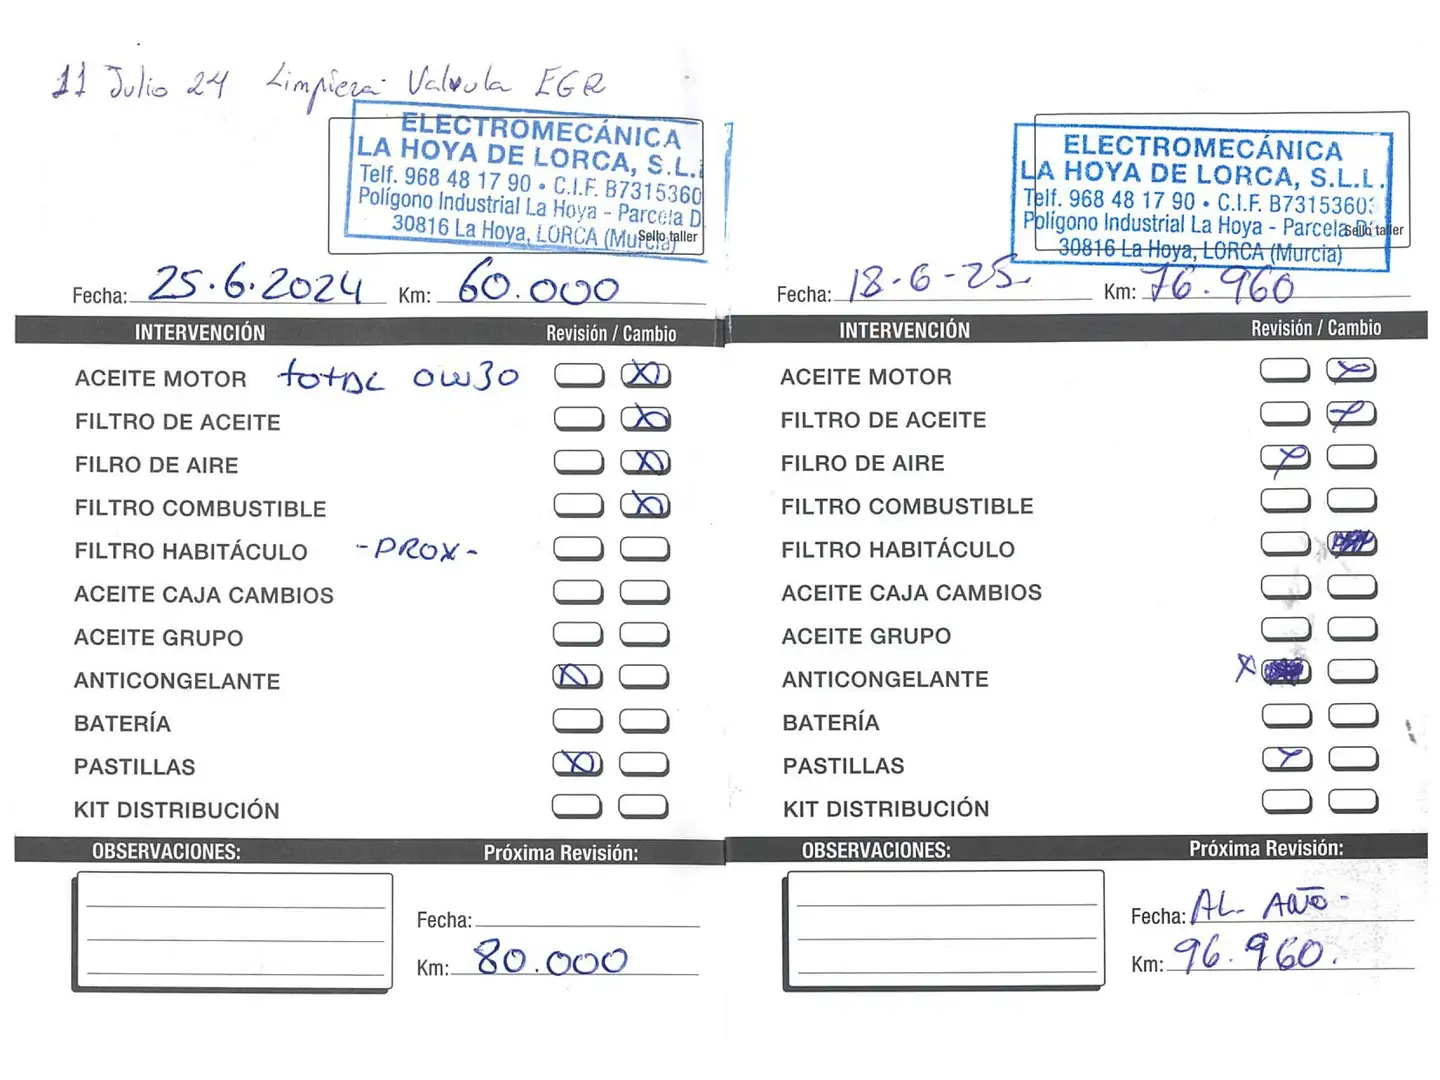 11 Julio 24 Limpieza Valvula EGR
ELECTROMECÁNICA
LA HOYA DE LORCA, S.L.
Telf. 968 48 17 90 • C.I.F. B7315360
Polígono Industrial La Hoya - Parcela D
30816 La Hoya, LORCA (Murcia)
Sello taller
Fecha: 25.6.2024 Km: 60.000
INTERVENCIÓN Revisión / Cambio
ACEITE MOTOR TOTAL 0W30 X
FILTRO DE ACEITE X
FILRO DE AIRE X
FILTRO COMBUSTIBLE X
FILTRO HABITÁCULO -PROX-
ACEITE CAJA CAMBIOS
ACEITE GRUPO
ANTICONGELANTE X
BATERÍA
PASTILLAS X
KIT DISTRIBUCIÓN
OBSERVACIONES: Próxima Revisión:
Fecha:
Km: 80.000
ELECTROMECÁNICA
LA HOYA DE LORCA, S.L.L.
Telf. 968 48 17 90 • C.I.F. B7315360
Polígono Industrial La Hoya - Parcela D
Sello taller
30816 La Hoya, LORCA (Murcia)
Fecha: 18-6-25 Km: 76.960
INTERVENCIÓN Revisión / Cambio
ACEITE MOTOR X
FILTRO DE ACEITE X
FILRO DE AIRE X
FILTRO COMBUSTIBLE
FILTRO HABITÁCULO
ACEITE CAJA CAMBIOS
ACEITE GRUPO
ANTICONGELANTE X
BATERÍA
PASTILLAS X
KIT DISTRIBUCIÓN
OBSERVACIONES: Próxima Revisión:
Fecha: AL AÑO-
Km: 96.960.